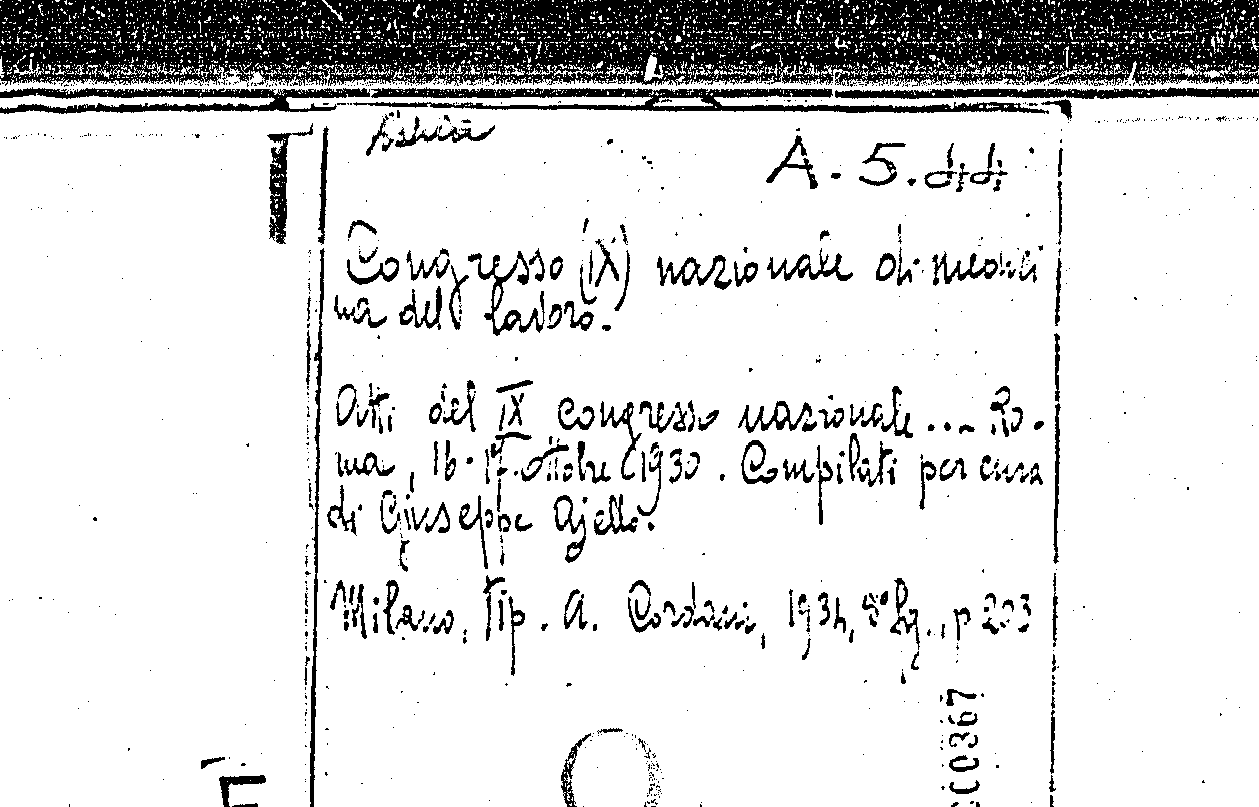 A. 5.
Congresso (IX) nazionale di medici
na del lavoro.
Atti del IX congresso nazionale... Ro-
ma, 16-17 ottobre 1930. Compilati per cura
di Giuseppe Ajello.
Milano, Tip. A. Cordani, 1934, 8° Lg., p 203
CC0367